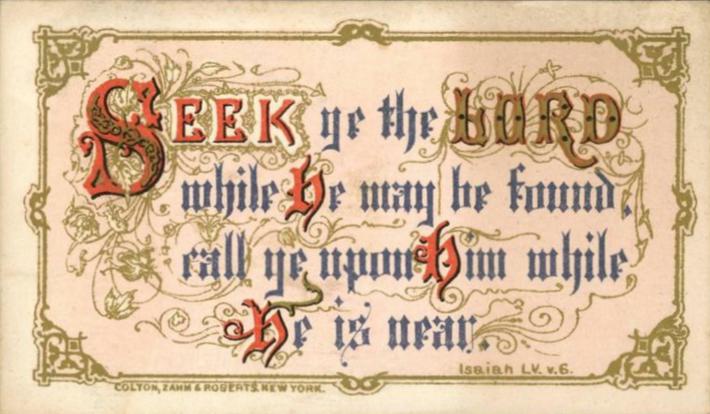 SEEK ye the LORD
while He may be found,
call ye upon Him while
He is near.
Isaiah LV. v.6.
COLTON, ZAHM & ROBERTS, NEW YORK.